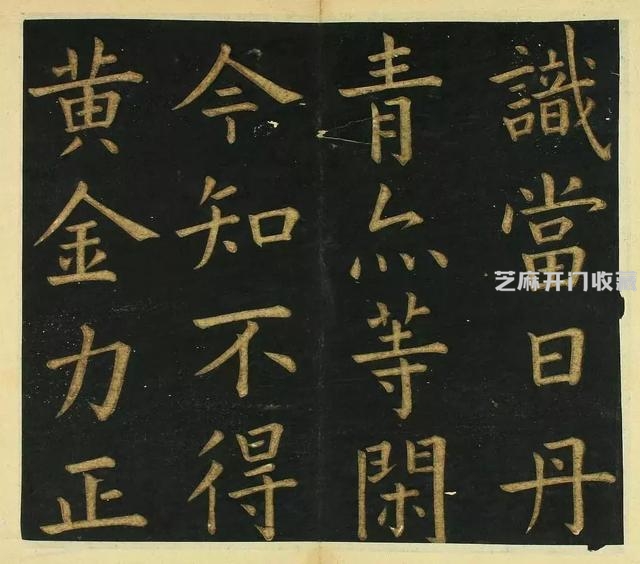 識當日丹
青亦等閑
今知不得
黄金力正
芝麻开门收藏